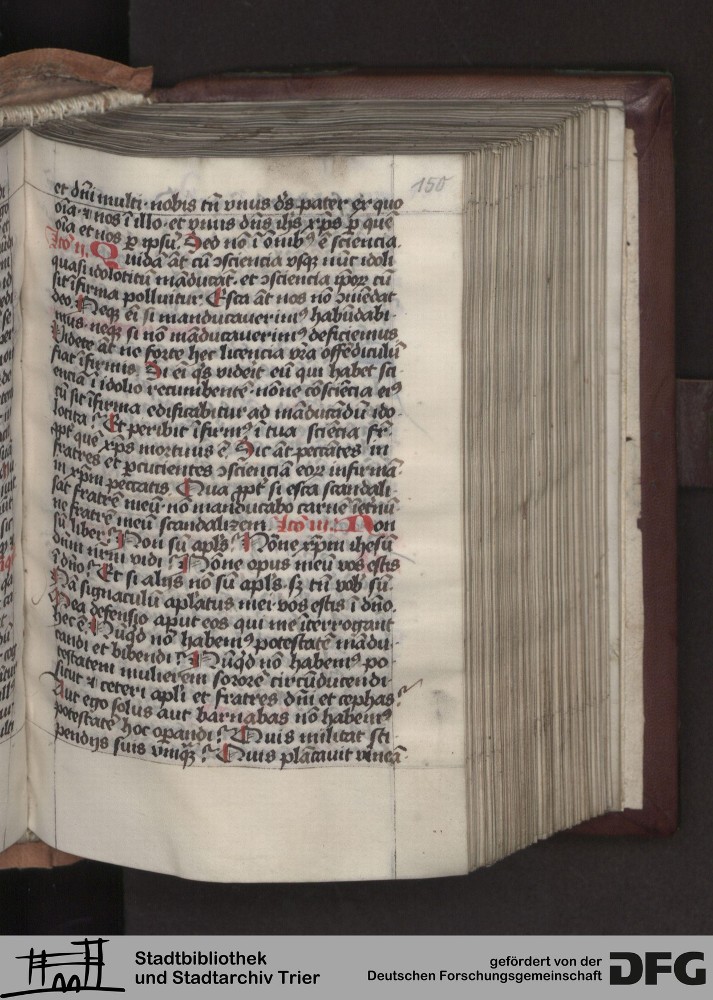 150
et dn̄i multi · nobis tn̄ vnus d̄s pater ex quo
oīa · ⁊ nos ī illo · et vnus dn̄s ih̄s xp̄s ꝑ quē
oīa et nos ꝑ ip̄su᷒. Sed nō ī om̄ib9 ē sciencia.
lcō ii. Quidā āt cū ↄsciencia vsq̨ nūc idoli
quasi idolotitū māducāt · et ↄsciencia ip̄oꝝ cū
sit īfirma polluitur. Esca āt nos nō ↄmēdat
deo. Neq̨ ei᷒ si manducauerim9 habūdabi-
mus · neq̨ si nō māducauerim9 deficiemus
Videte āt ne forte hec licencia vr̄a offēdiculū
fiat īfirmis. Si ei᷒ q̄s viderit eū qui habet sci-
enciā ī idolio recumbentē · nōne cōsciēcia ei9
cū sit īfirma edificabitur ad māducādū ido-
lotita? Et peribit īfirm9 ī tua sciēcia fr̄
ꝓpt̄ quē xp̄s mortuus ē. Sic āt peccātes in
fratres et ꝑcucientes ↄscienciā eoꝝ infirmā
in xp̄m peccatis. Qua ꝓpt̄ si esca scandali-
sat fratrē meū · nō manducabo carnē ī et̄nū
ne fratrē meū scandalizem. lcō iii. Non
sū liber? Non sū apl̄s? Nōne xp̄m ihesū
dn̄m nr̄m vidi? Nōne opus meū vos estis
ī dn̄o? Et si alijs nō sū apl̄s · sꝫ tn̄ vob᷒ sū᷒.
Nā signaculū ap̄latus mei vos estis ī dn̄o.
Mea defensio aput eos qui me īterrogant
hec ē. Nūqd nō habem9 potestatē mādu-
candi et bibendi? Nūqd nō habem9 po-
testatem mulierem sororē circūducendi
sicut ⁊ ceteri apl̄i et fratres dn̄i et cephas?
Aut ego solus aut barnabas nō habem9
potestatē hoc oꝑandi? Quis militat sti-
pendijs suis vmq̄ꝫ? Quis plātauit vineā
Stadtbibliothek
und Stadtarchiv Trier
gefördert von der
Deutschen Forschungsgemeinschaft
DFG